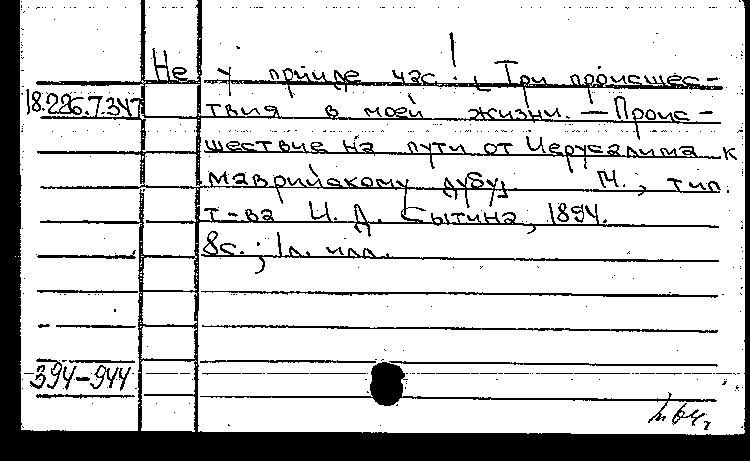 Не у прииде час! [Три происшес-
18.226.7.347 твия в моей жизни. — Проис-
шествие на пути от Иерусалима к
маврийскому дубу] М., тип.
т-ва И. Д. Сытина, 1894.
8с.; 1л. илл.
394-944